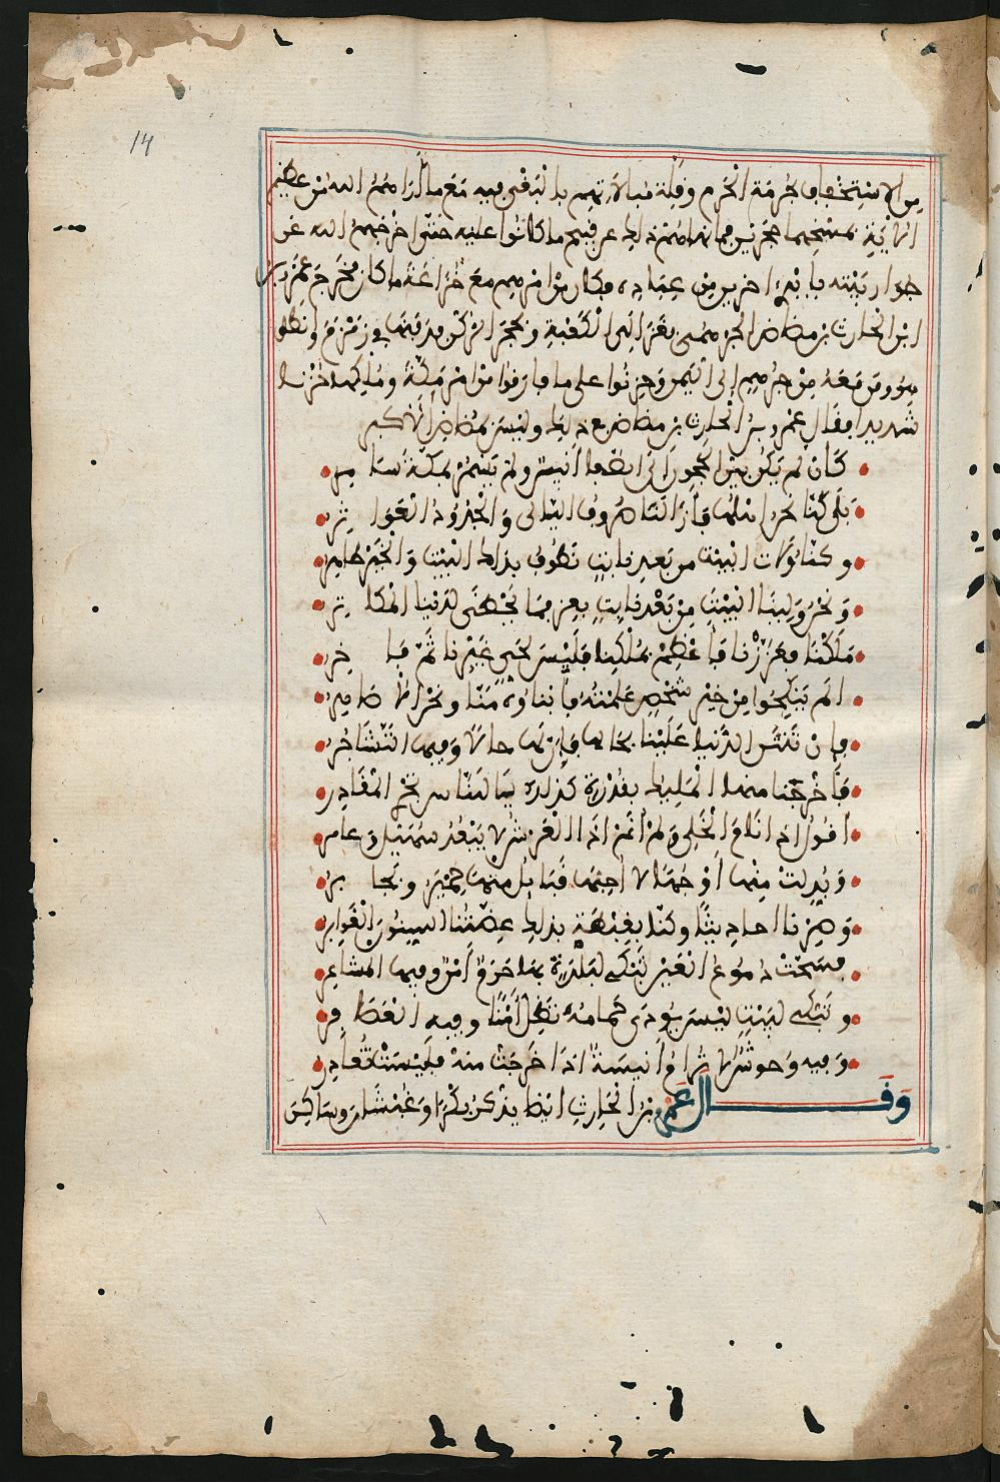 14
من الاستخفاف بحرمة الحرم وقلة مبالاتهم بالبغي فيه مع ما أراهم الله من عظيم
جوار بيته بايدي اخرين من عباده فكان من امرهم مع خزاعة ما كان فخرج عمرو بن
ابن الحارث بن مضاض الجرهمي بغزالي الكعبة وبحجر الركن فدفنها في زمزم وانطلق
هو ومن معه من جرهم إلى اليمن وحزنوا على ما فارقوا من امر مكة وملكها حزنا
شديدا فقال عمرو بن الحارث بن مضاض في ذلك وليس بمضاض الاكبر
كأن لم يكن بين الحجون إلى الصفا أنيس ولم يسمر بمكة سامر
بلى نحن كنا اهلها فأزالنا صروف الليالي والجدود العواثر
وكنا ولاة البيت من بعد نابت نطوف بذاك البيت والخير ظاهر
ونحن ولينا البيت من بعد نابت بعز فما يحظى لدينا المكاثر
ملكنا فعززنا فأعظم بملكنا فليس لحي غيرنا ثم فاخر
ألم تنكحوا من خير شخص علمته فأبناؤه منا ونحن الاصاهر
فإن تنثن الدنيا علينا بحالها فإن لها حالا وفيها التشاجر
فأخرجنا منها المليك بقدرة كذلك يا للناس تجري المقادر
أقول اذا نام الخلي ولم أنم اذا العرش لا يبعد سهيل وعامر
وبدلت منها أوجها لا أحبها قبائل منها حمير ويحابر
وصرنا احاديثا وكنا بغبطة بذلك عضتنا السنون الغوابر
فسحت دموع العين تبكي لبلدة بها حرم أمن وفيها المشاعر
وتبكي لبيت ليس يوذى حمامه يظل أمنا وفيه العصافر
وفيه وحوش لا ترام أنيسة اذا خرجت منه فليست تغادر
وقال عمرو بن الحارث ايضا يذكر بكرا وغبشان وساكني